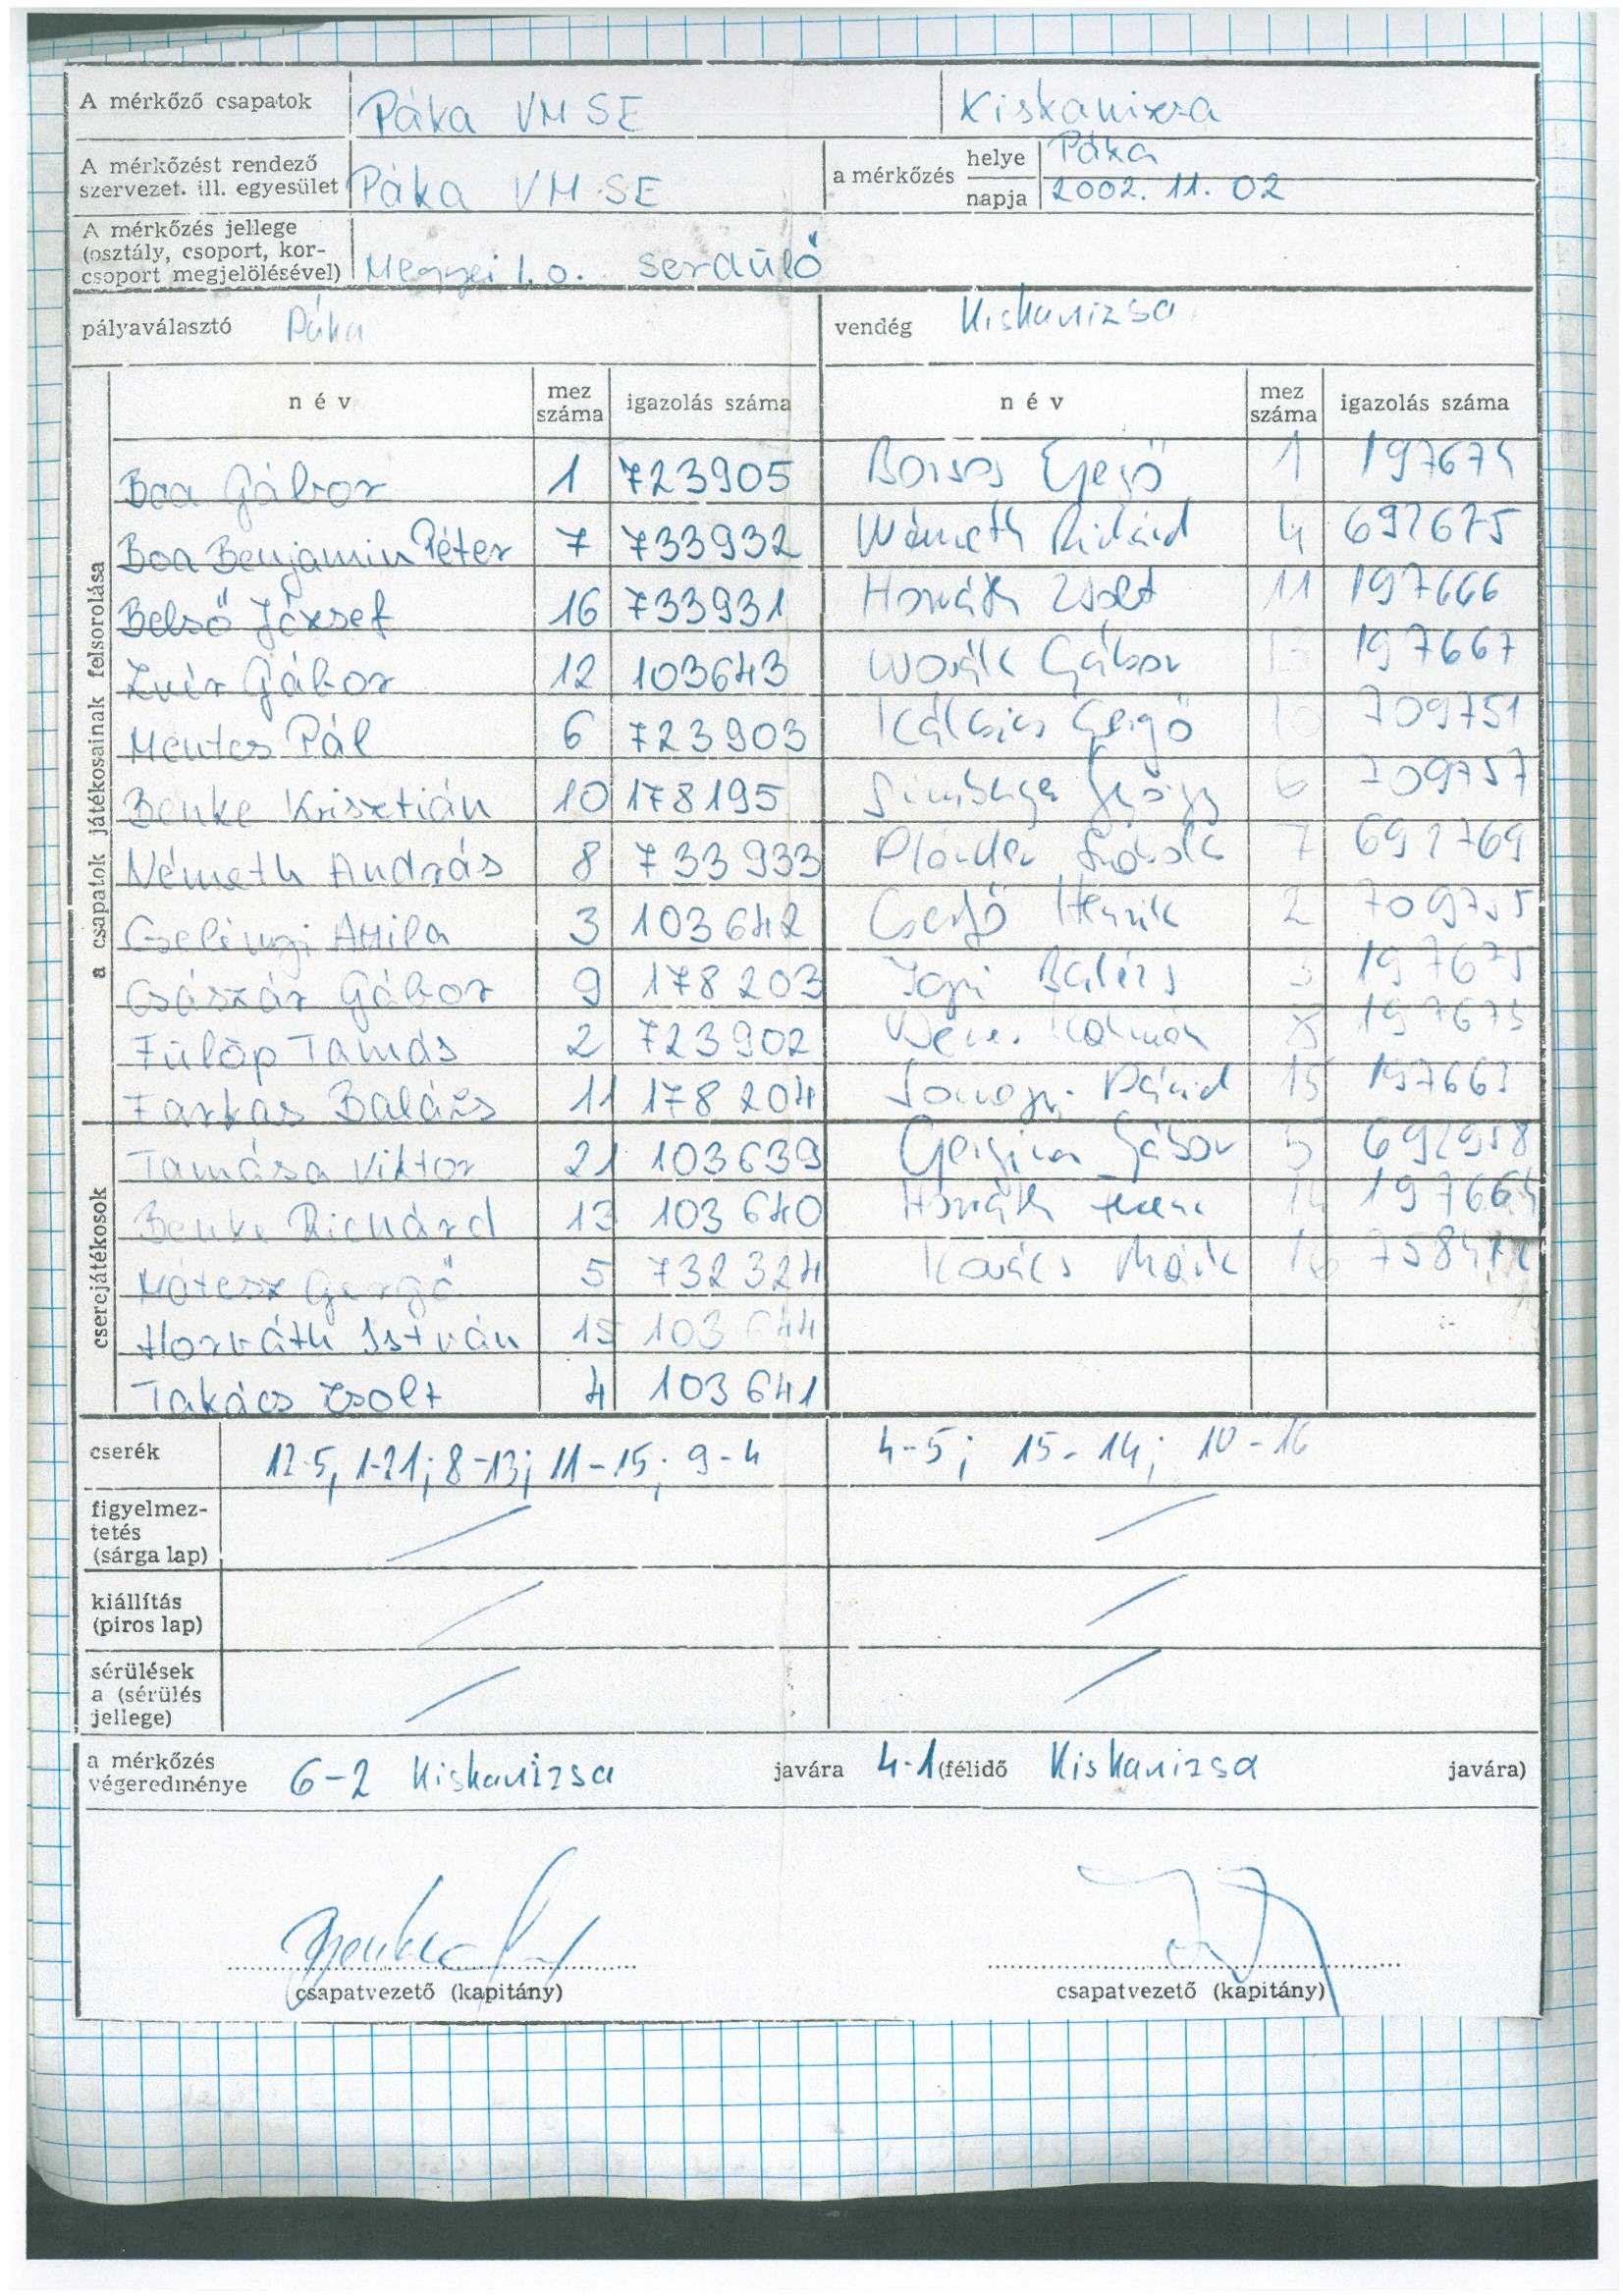 A mérkőző csapatok Páka VMSE Kiskanizsa
A mérkőzést rendező szervezet. ill. egyesület Páka VMSE a mérkőzés helye Páka
napja 2002. 11. 02
A mérkőzés jellege (osztály, csoport, kor-
csoport megjelölésével) Megyei I. o. serdülő
pályaválasztó Páka vendég Kiskanizsa
a csapatok játékosainak felsorolása
név mez száma igazolás száma név mez száma igazolás száma
Boa Gábor 1 723905 1
Boa Benjamin Péter 7 733932 Németh 4
Belső József 16 733931 Horváth Zsolt 11 197666
Zvér Gábor 12 103643 Gábor 197667
Mentes Pál 6 723903 Gergő 709751
Benke Krisztián 10 178195 6 709757
Németh András 8 733933 7
Cselényi Attila 3 103642 Cserfő Henrik 2 709755
Császár Gábor 9 178203 Balázs
Fülöp Tamás 2 723902 Kálmán
Farkas Balázs 11 178204 Dávid 15
cserejátékosok
Tamása Viktor 21 103639 Gábor 5
Benke Richárd 13 103640 Horváth 14 197664
Mátesz Gergő 5 732324 Kovács Márk 16
Horváth István 15 103644
Takács Zsolt 4 103641
cserék 12-5, 1-21; 8-13; 11-15; 9-4 4-5; 15-14; 10-16
figyelmez-
tetés
(sárga lap)
kiállítás
(piros lap)
sérülések
a (sérülés
jellege)
a mérkőzés végeredménye 6-2 Kiskanizsa javára 4-1 (félidő Kiskanizsa javára)
csapatvezető (kapitány) csapatvezető (kapitány)